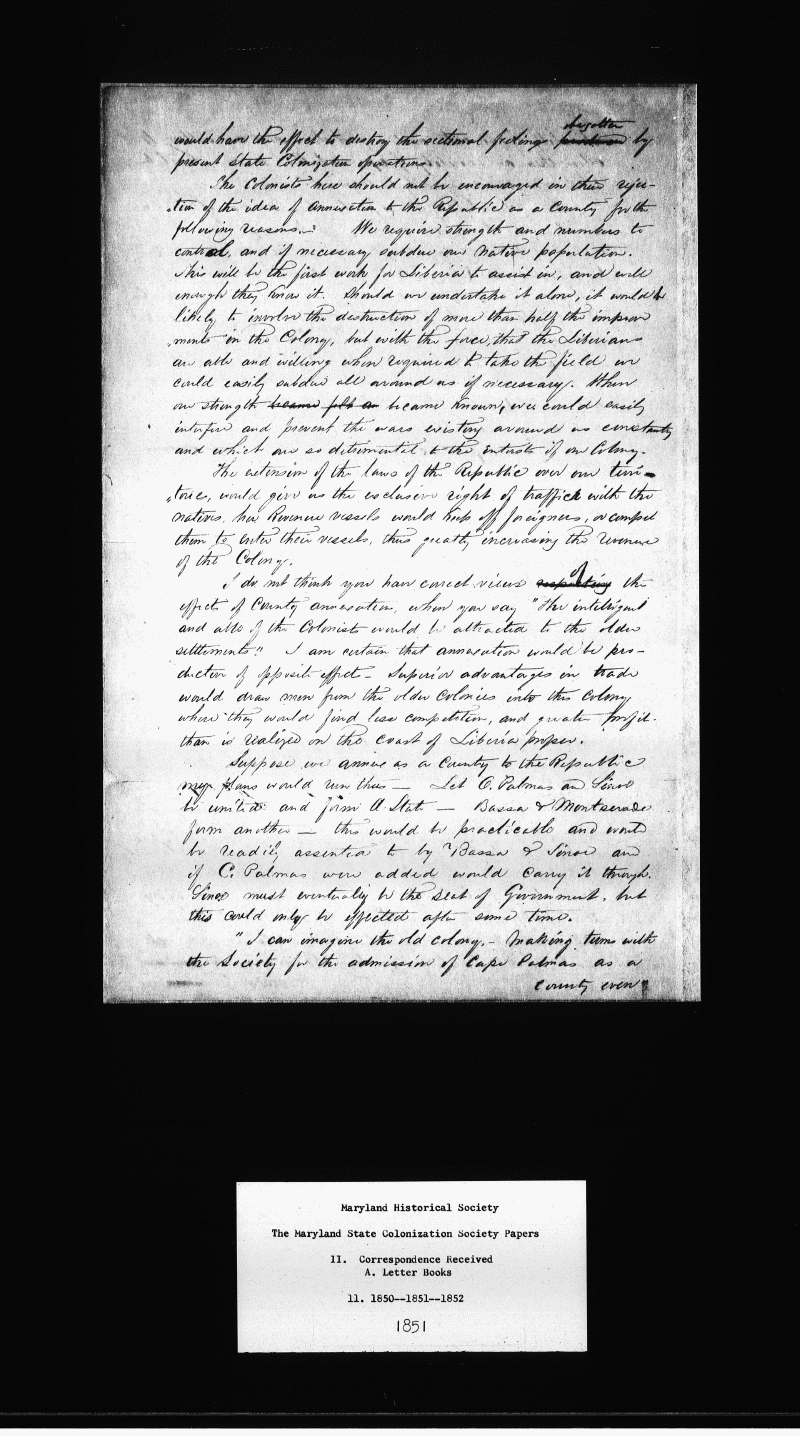 begotten
would have the effect to destroy the sectional feelings by
present state Colonization operations.
The Colonists here should not be encouraged in their rejec-
tion of the idea of annexation to the Republic as a County for the
following reasons.— We require strength and numbers to
control, and if necessary subdue our native population.
This will be the first work for Liberia to assist in, and well
enough they know it. Should we undertake it alone, it would be
likely to involve the destruction of more than half the improve
ments in the Colony, but with the force, that the Liberians
are able and willing when required to take the field we
could easily subdue all around us if necessary. When
our strength became felt an became known, we could easily
interfere and prevent the wars existing around us constantly
and which are so detrimental to the interests of our Colony.
The extension of the laws of the Republic over our terri-
tories, would give us the exclusive right of traffick with the
natives, her Revenue vessels would keep off foreigners, or compel
them to enter their vessels, thus greatly increasing the Revenue
of the Colony.
of
I do not think you have correct views respecting the
effects of County annexation, when you say "The intelligent
and able of the Colonists would be attracted to the older
settlements". I am certain that annexation would be pro-
ductive of opposite effects— Superior advantages in trade
would draw men from the older colonies into this Colony
where they would find less competition, and greater profit.
than is realized on the coast of Liberia proper.
Suppose we annex as a County to the Republic
my plans would run thus — Let C. Palmas and Sinoe
be united and form a State — Bassa & Montserado
form another — this would be practicable and would
be readily assented to by Bassa & Sinoe and
if C. Palmas were added would carry it through.
Sinoe must eventually be the seat of Government, but
this could only be effected after some time.
"I can imagine the old colony,- making terms with
the Society for the admission of Cape Palmas as a
County even"
Maryland Historical Society
The Maryland State Colonization Society Papers
II. Correspondence Received
A. Letter Books
11. 1850--1851--1852
1851